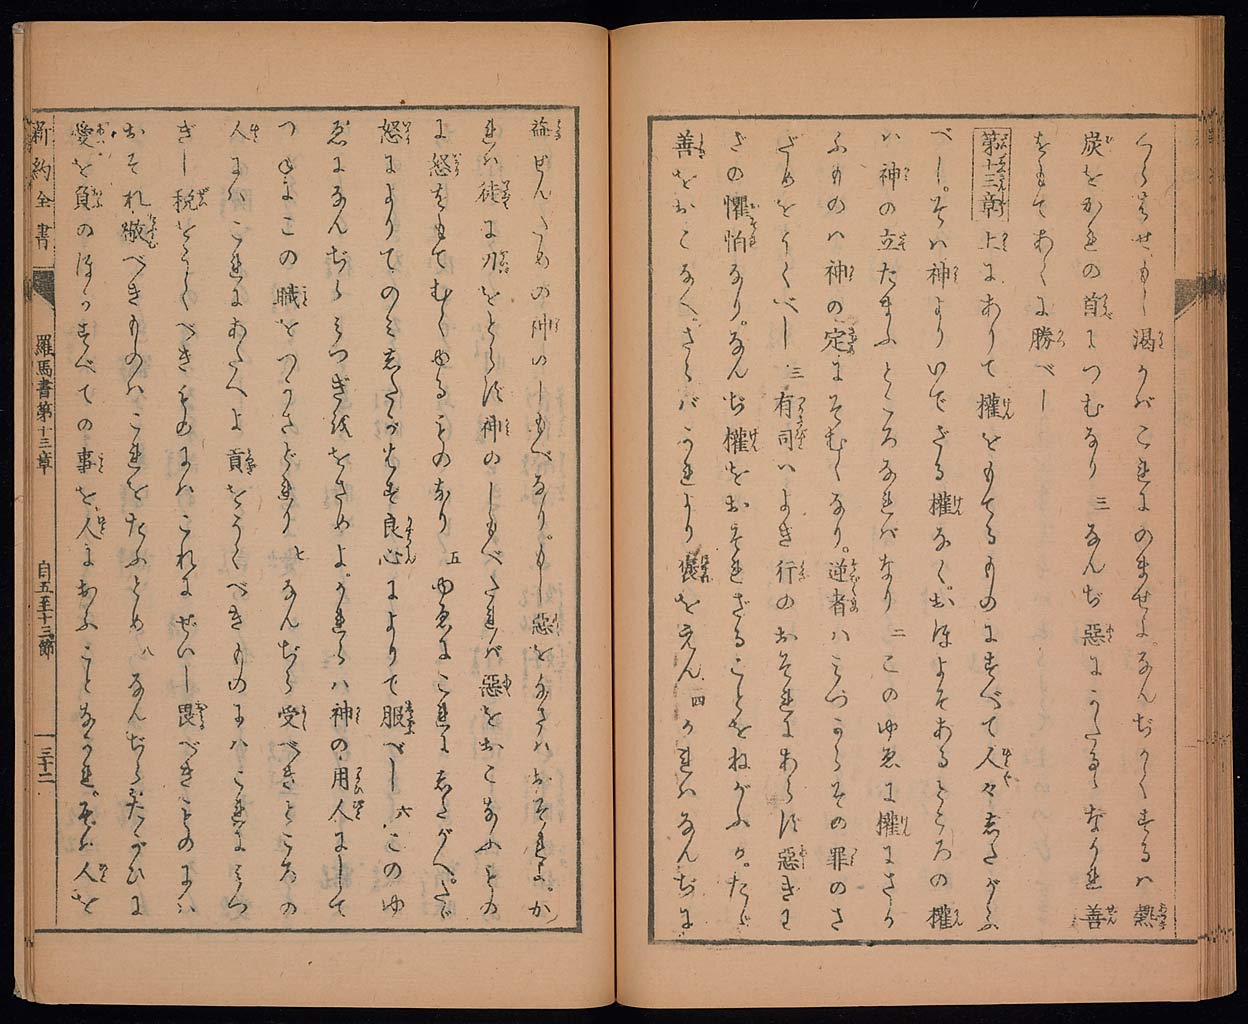 くらはせもし渇かばこれにのませよなんぢかくするハ熱
炭をかれの首につむなり三なんぢ惡にかたるゝなかれ善
をもてあくに勝べし
第十三章上にありて權をもてるものにすべて人々志たがふ
べし。そハ神よりいでざる權なく。おほよそあるところの權
ハ神の立たまふところなれバなり二このゆゑに權にさか
ふものハ神の定にそむくなり。逆者ハみづからその罪のさ
だめをうくべし三有司ハよき行のおそれにあらず惡ぎや
うの懼怕なり。なんぢ權をおそれざることをねがふか。たゞ
善をおこなへ。さらバかれより褒をえん四かれハなんぢに
益せんための神のしもべなり。もし惡をなさバおそれよ。か
れハ徒に刀をとらず神のしもべたれバ惡をおこなふもの
に怒をもてむくゆるものなり五ゆゑにこれに志たがへ。たゞ
怒によりてのミ志たがはず良心によりて服べし六このゆ
ゑになんぢらみつぎをおさめよ。かれらハ神の用人にして
つねにこの職をつかさどれり七なんぢら受べきところの
人にハこれにあたへよ貢をうくべきものにハこれにみつ
ぎし税をうくべきものにハこれにぜいし畏べきものにハ
おそれ敬べきものハこれをたふとめ八なんぢらたがひに
愛を負のほかすべての事を人におふことなかれ。そハ人を
新約全書
羅馬書第十三章
自五至十三節
三十二